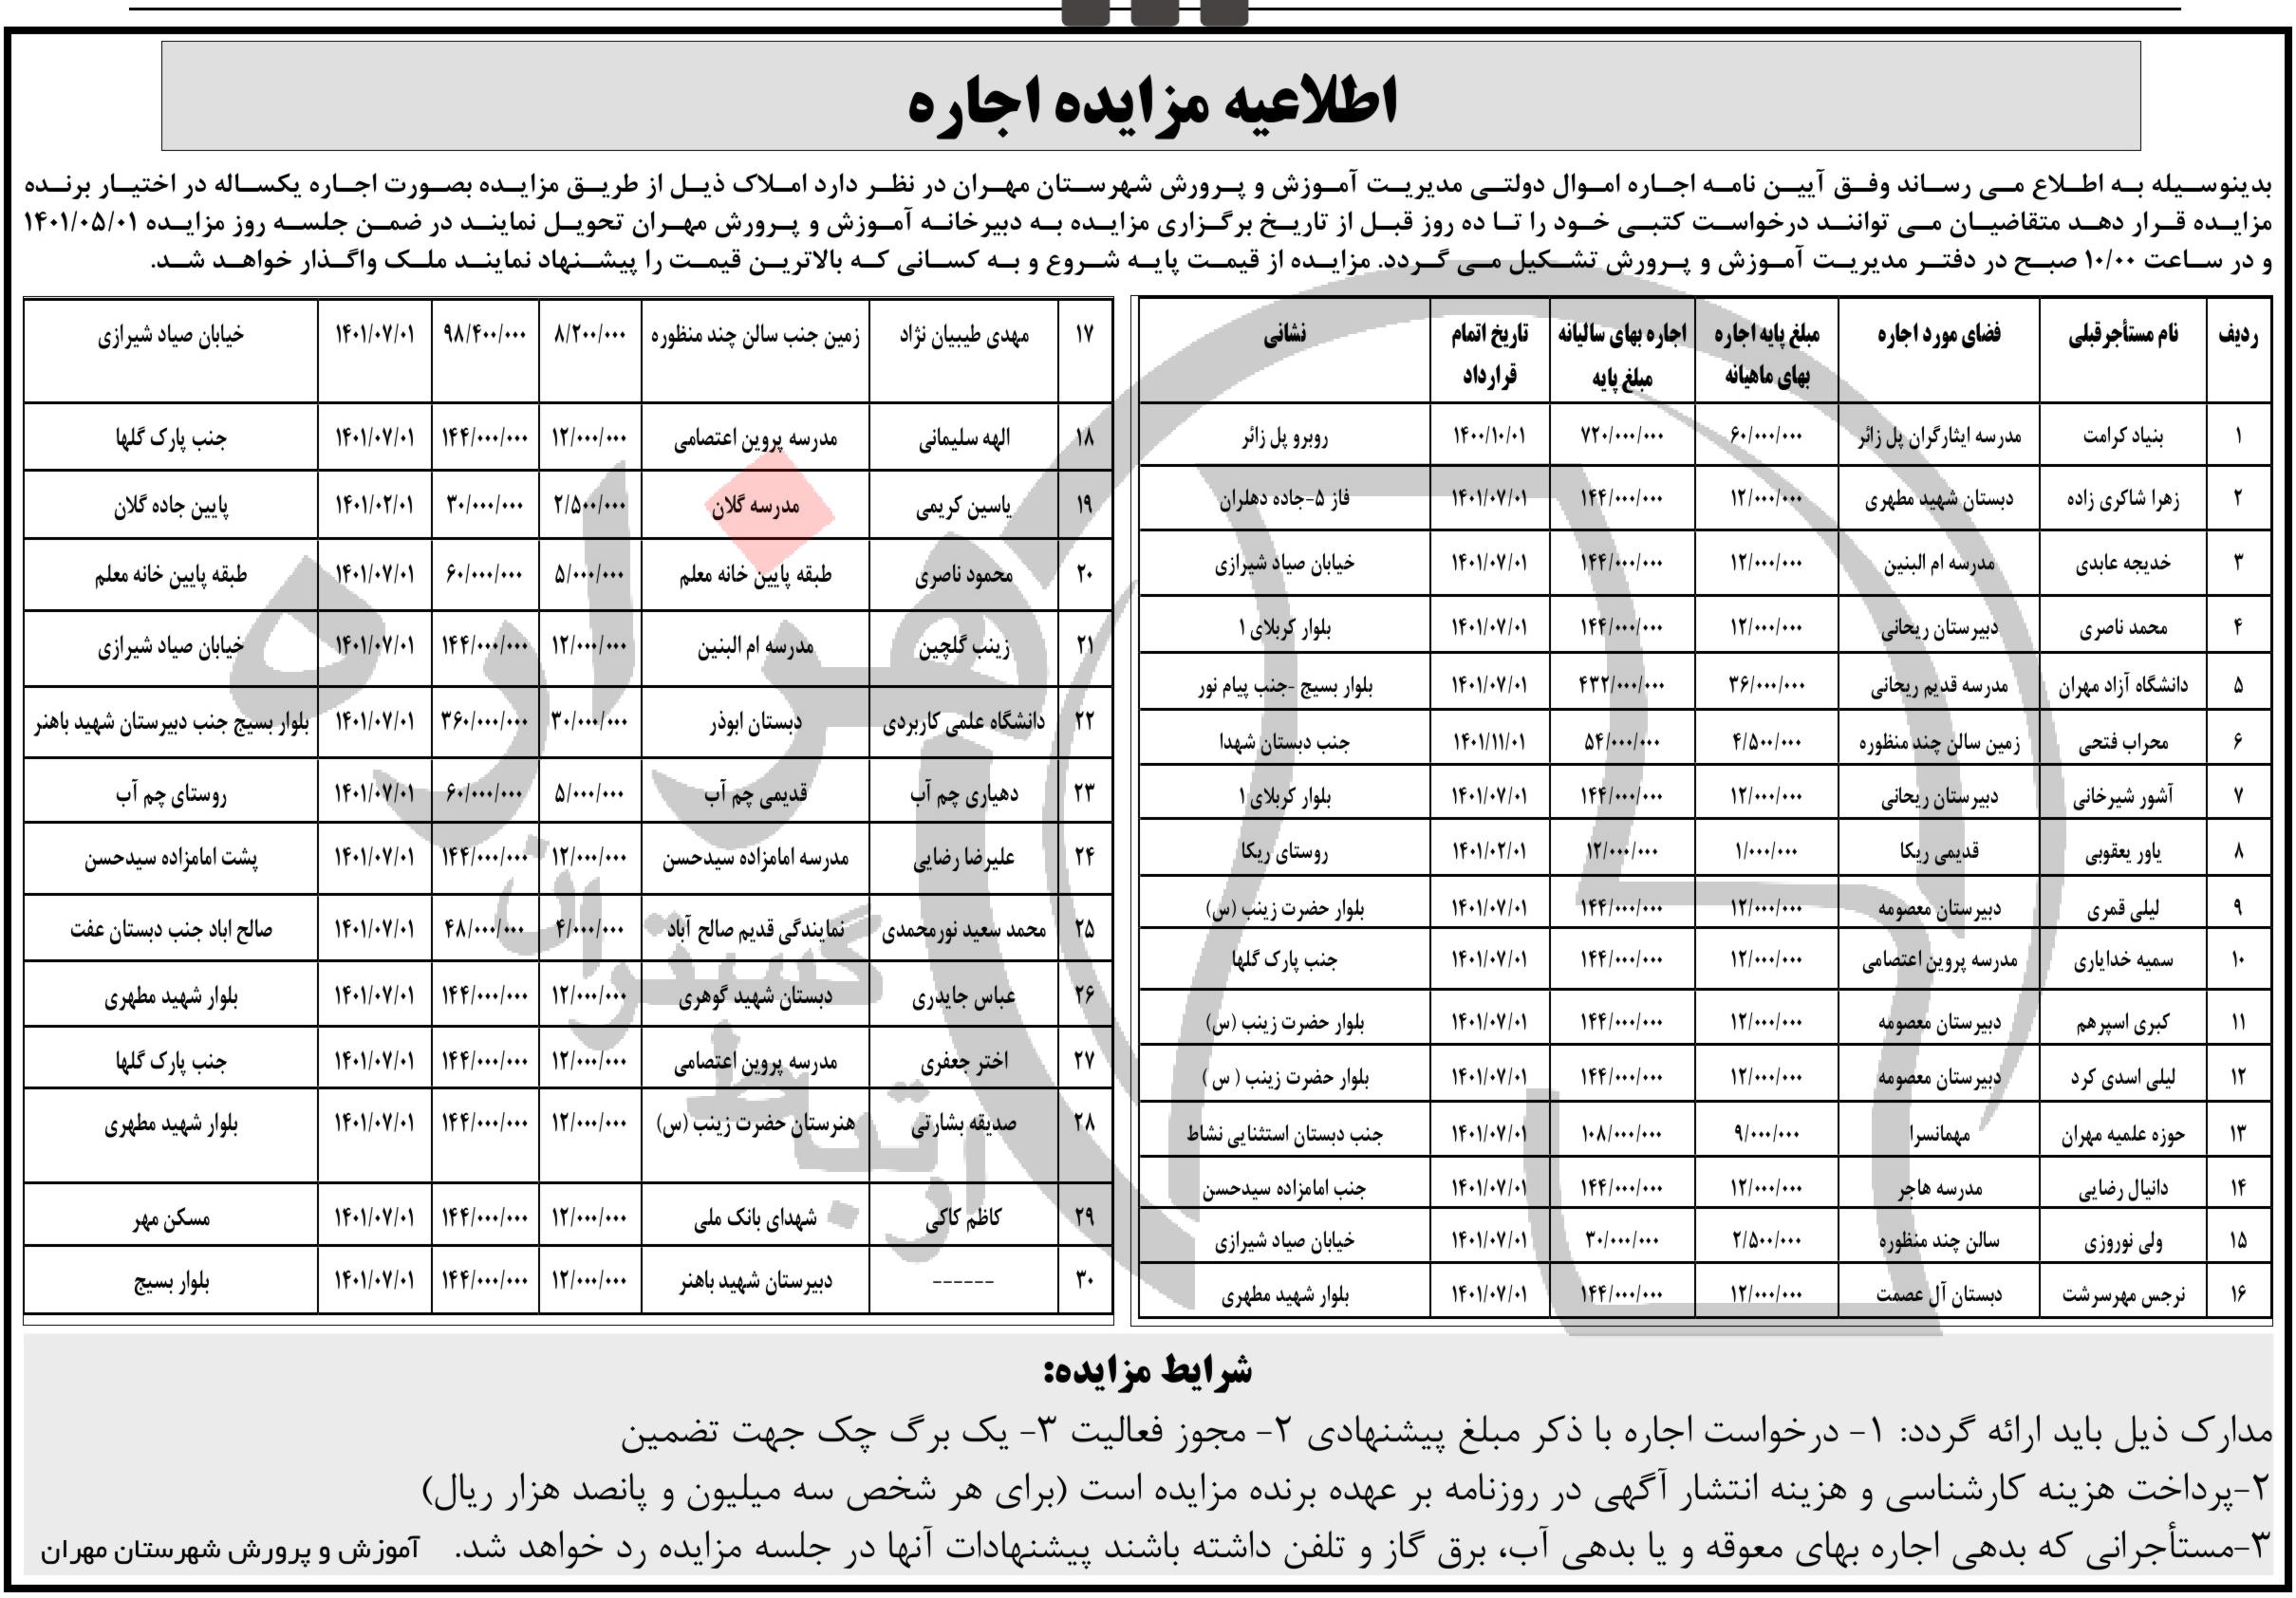 اطلاعیه مزایده اجاره
بدینوسیله به اطلاع می رساند وفق آیین نامه اجاره اموال دولتی مدیریت آموزش و پرورش شهرستان مهران در نظر دارد املاک ذیل از طریق مزایده بصورت اجاره یکساله در اختیار برنده
مزایده قرار دهد متقاضیان می توانند درخواست کتبی خود را تا ده روز قبل از تاریخ برگزاری مزایده به دبیرخانه آموزش و پرورش مهران تحویل نمایند در ضمن جلسه روز مزایده ۱۴۰۱/۰۵/۰۱
و در ساعت ۱۰/۰۰ صبح در دفتر مدیریت آموزش و پرورش تشکیل می گردد. مزایده از قیمت پایه شروع و به کسانی که بالاترین قیمت را پیشنهاد نمایند ملک واگذار خواهد شد.
ردیف نام مستأجرقبلی فضای مورد اجاره مبلغ پایه اجاره بهای ماهیانه اجاره بهای سالیانه مبلغ پایه تاریخ اتمام قرارداد نشانی
۱ بنیاد کرامت مدرسه ایثارگران پل زائر ۶۰/۰۰۰/۰۰۰ ۷۲۰/۰۰۰/۰۰۰ ۱۴۰۰/۱۰/۰۱ روبرو پل زائر
۲ زهرا شاکری زاده دبستان شهید مطهری ۱۲/۰۰۰/۰۰۰ ۱۴۴/۰۰۰/۰۰۰ ۱۴۰۱/۰۷/۰۱ فاز ۵-جاده دهلران
۳ خدیجه عابدی مدرسه ام البنین ۱۲/۰۰۰/۰۰۰ ۱۴۴/۰۰۰/۰۰۰ ۱۴۰۱/۰۷/۰۱ خیابان صیاد شیرازی
۴ محمد ناصری دبیرستان ریحانی ۱۲/۰۰۰/۰۰۰ ۱۴۴/۰۰۰/۰۰۰ ۱۴۰۱/۰۷/۰۱ بلوار کربلای ۱
۵ دانشگاه آزاد مهران مدرسه قدیم ریحانی ۳۶/۰۰۰/۰۰۰ ۴۳۲/۰۰۰/۰۰۰ ۱۴۰۱/۰۷/۰۱ بلوار بسیج -جنب پیام نور
۶ محراب فتحی زمین سالن چند منظوره ۴/۵۰۰/۰۰۰ ۵۴/۰۰۰/۰۰۰ ۱۴۰۱/۱۱/۰۱ جنب دبستان شهدا
۷ آشور شیرخانی دبیرستان ریحانی ۱۲/۰۰۰/۰۰۰ ۱۴۴/۰۰۰/۰۰۰ ۱۴۰۱/۰۷/۰۱ بلوار کربلای ۱
۸ یاور یعقوبی قدیمی ریکا ۱/۰۰۰/۰۰۰ ۱۲/۰۰۰/۰۰۰ ۱۴۰۱/۰۲/۰۱ روستای ریکا
۹ لیلی قمری دبیرستان معصومه ۱۲/۰۰۰/۰۰۰ ۱۴۴/۰۰۰/۰۰۰ ۱۴۰۱/۰۷/۰۱ بلوار حضرت زینب (س)
۱۰ سمیه خدایاری مدرسه پروین اعتصامی ۱۲/۰۰۰/۰۰۰ ۱۴۴/۰۰۰/۰۰۰ ۱۴۰۱/۰۷/۰۱ جنب پارک گلها
۱۱ کبری اسپرهم دبیرستان معصومه ۱۲/۰۰۰/۰۰۰ ۱۴۴/۰۰۰/۰۰۰ ۱۴۰۱/۰۷/۰۱ بلوار حضرت زینب (س)
۱۲ لیلی اسدی کرد دبیرستان معصومه ۱۲/۰۰۰/۰۰۰ ۱۴۴/۰۰۰/۰۰۰ ۱۴۰۱/۰۷/۰۱ بلوار حضرت زینب ( س )
۱۳ حوزه علمیه مهران مهمانسرا ۹/۰۰۰/۰۰۰ ۱۰۸/۰۰۰/۰۰۰ ۱۴۰۱/۰۷/۰۱ جنب دبستان استثنایی نشاط
۱۴ دانیال رضایی مدرسه هاجر ۱۲/۰۰۰/۰۰۰ ۱۴۴/۰۰۰/۰۰۰ ۱۴۰۱/۰۷/۰۱ جنب امامزاده سیدحسن
۱۵ ولی نوروزی سالن چند منظوره ۲/۵۰۰/۰۰۰ ۳۰/۰۰۰/۰۰۰ ۱۴۰۱/۰۷/۰۱ خیابان صیاد شیرازی
۱۶ نرجس مهرسرشت دبستان آل عصمت ۱۲/۰۰۰/۰۰۰ ۱۴۴/۰۰۰/۰۰۰ ۱۴۰۱/۰۷/۰۱ بلوار شهید مطهری
۱۷ مهدی طبیبیان نژاد زمین جنب سالن چند منظوره ۸/۲۰۰/۰۰۰ ۹۸/۴۰۰/۰۰۰ ۱۴۰۱/۰۷/۰۱ خیابان صیاد شیرازی
۱۸ الهه سلیمانی مدرسه پروین اعتصامی ۱۲/۰۰۰/۰۰۰ ۱۴۴/۰۰۰/۰۰۰ ۱۴۰۱/۰۷/۰۱ جنب پارک گلها
۱۹ یاسین کریمی مدرسه گلان ۲/۵۰۰/۰۰۰ ۳۰/۰۰۰/۰۰۰ ۱۴۰۱/۰۲/۰۱ پایین جاده گلان
۲۰ محمود ناصری طبقه پایین خانه معلم ۵/۰۰۰/۰۰۰ ۶۰/۰۰۰/۰۰۰ ۱۴۰۱/۰۷/۰۱ طبقه پایین خانه معلم
۲۱ زینب گلچین مدرسه ام البنین ۱۲/۰۰۰/۰۰۰ ۱۴۴/۰۰۰/۰۰۰ ۱۴۰۱/۰۷/۰۱ خیابان صیاد شیرازی
۲۲ دانشگاه علمی کاربردی دبستان ابوذر ۳۰/۰۰۰/۰۰۰ ۳۶۰/۰۰۰/۰۰۰ ۱۴۰۱/۰۷/۰۱ بلوار بسیج جنب دبیرستان شهید باهنر
۲۳ دهیاری چم آب قدیمی چم آب ۵/۰۰۰/۰۰۰ ۶۰/۰۰۰/۰۰۰ ۱۴۰۱/۰۷/۰۱ روستای چم آب
۲۴ علیرضا رضایی مدرسه امامزاده سیدحسن ۱۲/۰۰۰/۰۰۰ ۱۴۴/۰۰۰/۰۰۰ ۱۴۰۱/۰۷/۰۱ پشت امامزاده سیدحسن
۲۵ محمد سعید نورمحمدی نمایندگی قدیم صالح آباد ۴/۰۰۰/۰۰۰ ۴۸/۰۰۰/۰۰۰ ۱۴۰۱/۰۷/۰۱ صالح اباد جنب دبستان عفت
۲۶ عباس جایدری دبستان شهید گوهری ۱۲/۰۰۰/۰۰۰ ۱۴۴/۰۰۰/۰۰۰ ۱۴۰۱/۰۷/۰۱ بلوار شهید مطهری
۲۷ اختر جعفری مدرسه پروین اعتصامی ۱۲/۰۰۰/۰۰۰ ۱۴۴/۰۰۰/۰۰۰ ۱۴۰۱/۰۷/۰۱ جنب پارک گلها
۲۸ صدیقه بشارتی هنرستان حضرت زینب (س) ۱۲/۰۰۰/۰۰۰ ۱۴۴/۰۰۰/۰۰۰ ۱۴۰۱/۰۷/۰۱ بلوار شهید مطهری
۲۹ کاظم کاکی شهدای بانک ملی ۱۲/۰۰۰/۰۰۰ ۱۴۴/۰۰۰/۰۰۰ ۱۴۰۱/۰۷/۰۱ مسکن مهر
۳۰ ------ دبیرستان شهید باهنر ۱۲/۰۰۰/۰۰۰ ۱۴۴/۰۰۰/۰۰۰ ۱۴۰۱/۰۷/۰۱ بلوار بسیج
هزاره
گستران
ارتباط
شرایط مزایده:
مدارک ذیل باید ارائه گردد: ۱- درخواست اجاره با ذکر مبلغ پیشنهادی ۲- مجوز فعالیت ۳- یک برگ چک جهت تضمین
۲-پرداخت هزینه کارشناسی و هزینه انتشار آگهی در روزنامه بر عهده برنده مزایده است (برای هر شخص سه میلیون و پانصد هزار ریال)
۳-مستأجرانی که بدهی اجاره بهای معوقه و یا بدهی آب، برق گاز و تلفن داشته باشند پیشنهادات آنها در جلسه مزایده رد خواهد شد. آموزش و پرورش شهرستان مهران